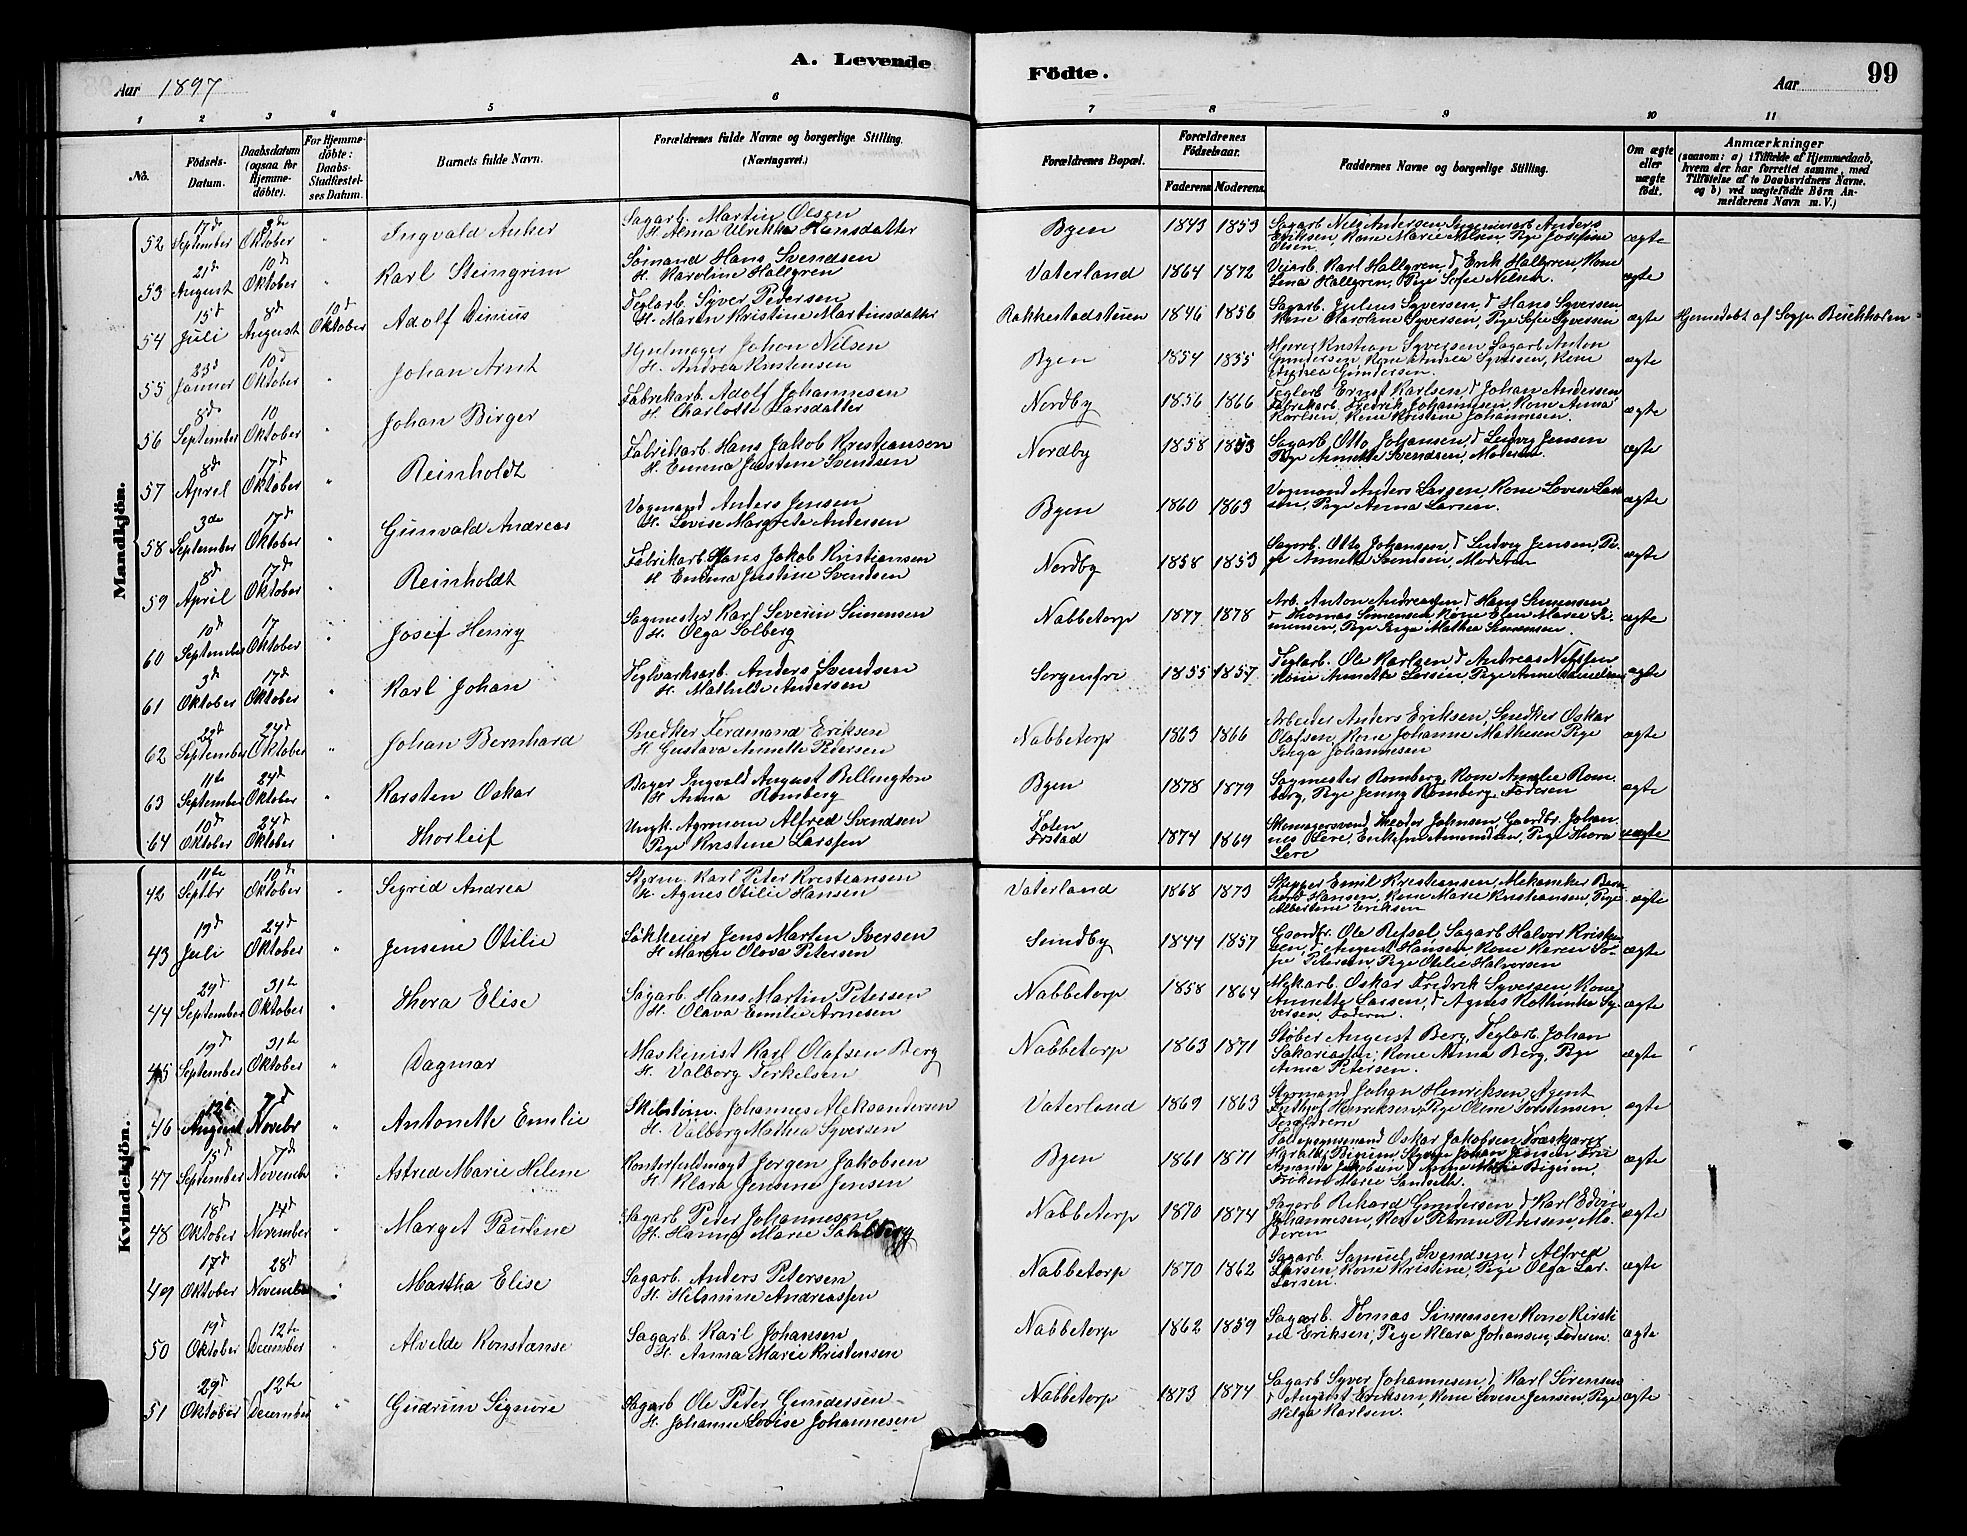 A. Levende
Födte.
99
Aar 1897
Aar
1 2 3 4 5 6 7 8 9 10 11
No.
Födsels-Datum.
Daabsdatum (ogsaa for Hjemme-döbte).
For Hjemme-döbte: Daabs-Stadfæstel-ses Datum.
Barnets fulde Navn.
Forældrenes fulde Navne og borgerlige Stilling. (Næringsvei.)
Forældrenes Bopæl.
Forældrenes Födselsaar.
Faderens. Moderens.
Faddernes Navne og borgerlige Stilling.
Om ægte eller uægte födt.
Anmærkninger
(saasom: a) i Tilfælde af Hjemmedaab,
hvem der har forrettet samme, med
Tilföielse af to Daabsvidners Navne,
og b) ved uægtefödte Börn An-
melderens Navn m. V.)
Mandkjön.
52 17d September 3de Oktober " Ingvald Anker
Sagarb. Martin Olsen
H. Alma Ulrikke Hansdatter
Byen 1843 1853
Sagarb Nils Andersen, Anders
Eriksen, Kone Marie Nilsen, Pige Josefine
Olsen
ægte
53 21d August 10d Oktober " Karl Steingrim
Sömand Hans Svendsen
H. Karoline Hallgren
Vaterland 1864 1872
Veiarb. Karl Hallgren, d Erik Hallgren, Kone
Lena Hallgren, Pige Sofie Nilsen.
ægte
54 15d Juli 8d August 10d Oktober Adolf Dinius
Teglarb. Syver Pedersen
H. Maren Kristine Martinsdatter
Rakkestadsteuen 1846 1856
Sagarb. Julius Syversen, d Hans Syversen
Kone Karoline Syversen, Pige Sofie Syversen
ægte
Hjemmedöbt af Sogpr. Buckholm
55 23d Januar 10d Oktober " Johan Arnt
Hjulmager Johan Nilsen
H. Andrea Kristensen
Byen 1854 1855
Murer Kristian Syversen, Sagarb Anton
Gundersen, Kone Andrea Syversen, Kone
Andrea Gundersen.
ægte
56 8d September 10 Oktober " Johan Birger
Fabrikarb. Adolf Johannesen
H. Charlotte Larsdatter
Nordby 1856 1866
Teglarb Ernst Karlsen, d Johan Andersen
Fabrikarb. Fredrik Johannesen, Kone Anna
Karlsen, Kone Kristine Johannesen.
ægte
57 8d April 17d Oktober " Reinholdt
Fabrikarb. Hans Jakob Kristiansen
H. Emma Justine Svendsen
Nordby 1858 1853
Sagarb. Otto Johansen, d Ludvig Jensen
Pige Annette Svendsen, Moderen.
ægte
58 3de September 17d Oktober " Gunvald Andreas
Vogmand Anders Jensen
H. Lovise Margrete Andersen
Byen 1860 1863
Vogmand Anders Larsen, Kone Lovise Lar-
sen, Pige Anna Larsen.
ægte
59 8d April 17d Oktober " Reinholdt
Fabrikarb. Hans Jakob Kristiansen
H. Emma Justine Svendsen
Nordby 1858 1853
Sagarb. Otto Johansen, d Ludvig Jensen, Pi-
ge Annette Svendsen, Moderen
ægte
60 10d September 17 Oktober " Josef Henry
Sagmester Karl Severin Simensen
H. Olga Solberg
Nabbetorp 1877 1878
Arb. Anton Andreassen, d Hans Simensen
d Thomas Simensen, Kone Elen Marie Si-
mensen, Pige Inga Mathea Simensen.
ægte
61 3d Oktober 17d Oktober " Karl Johan
Teglværksarb. Anders Svendsen
H. Mathilde Andersen
Sorgenfri 1855 1857
Teglarb. Ole Karlsen, d Andreas Nilssen
Kone Annette Larsen, Pige Anne Danielsen
ægte
62 22d September 24d Oktober " Johan Bernhard
Snedker Ferdinand Eriksen
H. Gustava Annette Pedersen
Nabbetorp 1863 1866
Arbeider Anders Eriksen, Snedker Oskar
Olafsen, Kone Johanne Mathesen Pige
Inga Johannesen
ægte
63 11te September 24d Oktober " Karsten Oskar
Bager Ingvald August Billington
H. Anna Romberg
Byen 1878 1879
Sagmester Romberg, Kone Amalie Rom-
berg, Pige Jenny Romberg, Faderen
ægte
64 10d Oktober 24d Oktober " Thorleif
Ungk. Agronom Alfred Svendsen
Pige Kristine Larssen
Toten
Frstad
1874 1869
Skomagersvend Theodor Johnsen, Gaardbr. Johan-
nes Lere, Enkefru Amundsen, Pige Thora
Lere
uægte
Kvindekjön.
42 11te Septbr 10d Oktober " Sigrid Andrea
Styrm. Karl Peter Kristiansen
H. Agnes Otilie Hansen
Vaterland 1868 1873
Skipper Emil Kristiansen, Mekaniker Bern-
hard Hansen, Kone Marie Kristiansen, Pige
Albertine Eriksen
ægte
43 19d Juli 24d Oktober " Jensine Otilie
Jens Martin Iversen
H. Maren Olava Petersen
Sundby 1844 1857
Gaardbr. Ole Refsal, Sagarb Halvor Kristian-
sen, d August Hansen, Kone Karen So-
fie Petersen Pige Otilie Halvorsen
ægte
44 29d September 31te Oktober " Thora Elise
Sagarb. Hans Martin Petersen
H. Olava Emilie Arnesen
Nabbetorp 1858 1864
Mekarb. Oskar Fredrik Syversen, Kone
Annette Larsen, d Agnes Kathinka Sy-
versen, Faderen.
ægte
45 19d September 31te Oktober " Dagmar
Maskinist Karl Olafsen Berg
H. Valborg Torkelsen
Nabbetorp 1863 1871
Støber August Berg, Teglarb. Johan
Sakariassen, Kone Anna Berg, Pige
Anna Petersen.
ægte
46 12te August 7d Novebr " Antonette Emilie
Johannes Aleksandersen
H. Valborg Mathea Syversen
Vaterland 1869 1863
Styrmand Johan Henriksen, Agent
Fridthjof Henriksen, Pige Oline Torstensen,
Forældrene
ægte
47 15d September 7d November " Astrid Marie Helene
Kontorfuldmægt Jörgen Jakobsen
H. Klara Jensine Jensen
Byen 1861 1871
Fallopsynsmand Oskar Jakobsen,
Harald, Johan Jensen Frue
Amanda Jakobsen, d Anna Marie
Fröken Marie
ægte
48 18d Oktober 14d November " Marget Pauline
Sagarb. Peter Johannesen
H. Hanna Marie Sahlberg
Nabbetorp 1870 1874
Sagarb Rikard Gundersen d Karl Edvin
Johannesen, Kone Petrine Pedersen, Mo-
deren
ægte
49 17d Oktober 28d November " Martha Elise
Sagarb. Anders Petersen
H. Hilmine Andreassen
Nabbetorp 1870 1862
Sagarb. Samuel Svendsen, d Alfred
Larsen, Kone Kristine, Pige Olga Lar-
Larsen.
ægte
50 19d Oktober 12te December " Alvilde Konstanse
Sagarb. Karl Johansen
H. Anna Marie Kristensen
Nabbetorp 1862 1859
Sagarb. Tomas Simensen Kone Kirsti-
ne Eriksen, Pige Klara Johansen, Faderen.
ægte
51 29d Oktober 12te December " Gudrun Signore
Sagarb Ole Peter Gundersen
H. Johanne Lovise Johannesen
Nabbetorp 1873 1874
Sagarb Syver Johannesen, d Karl Sörensen
d August Eriksen, Kone Lovise Jensen, Pige
Helga Karlsen.
ægte